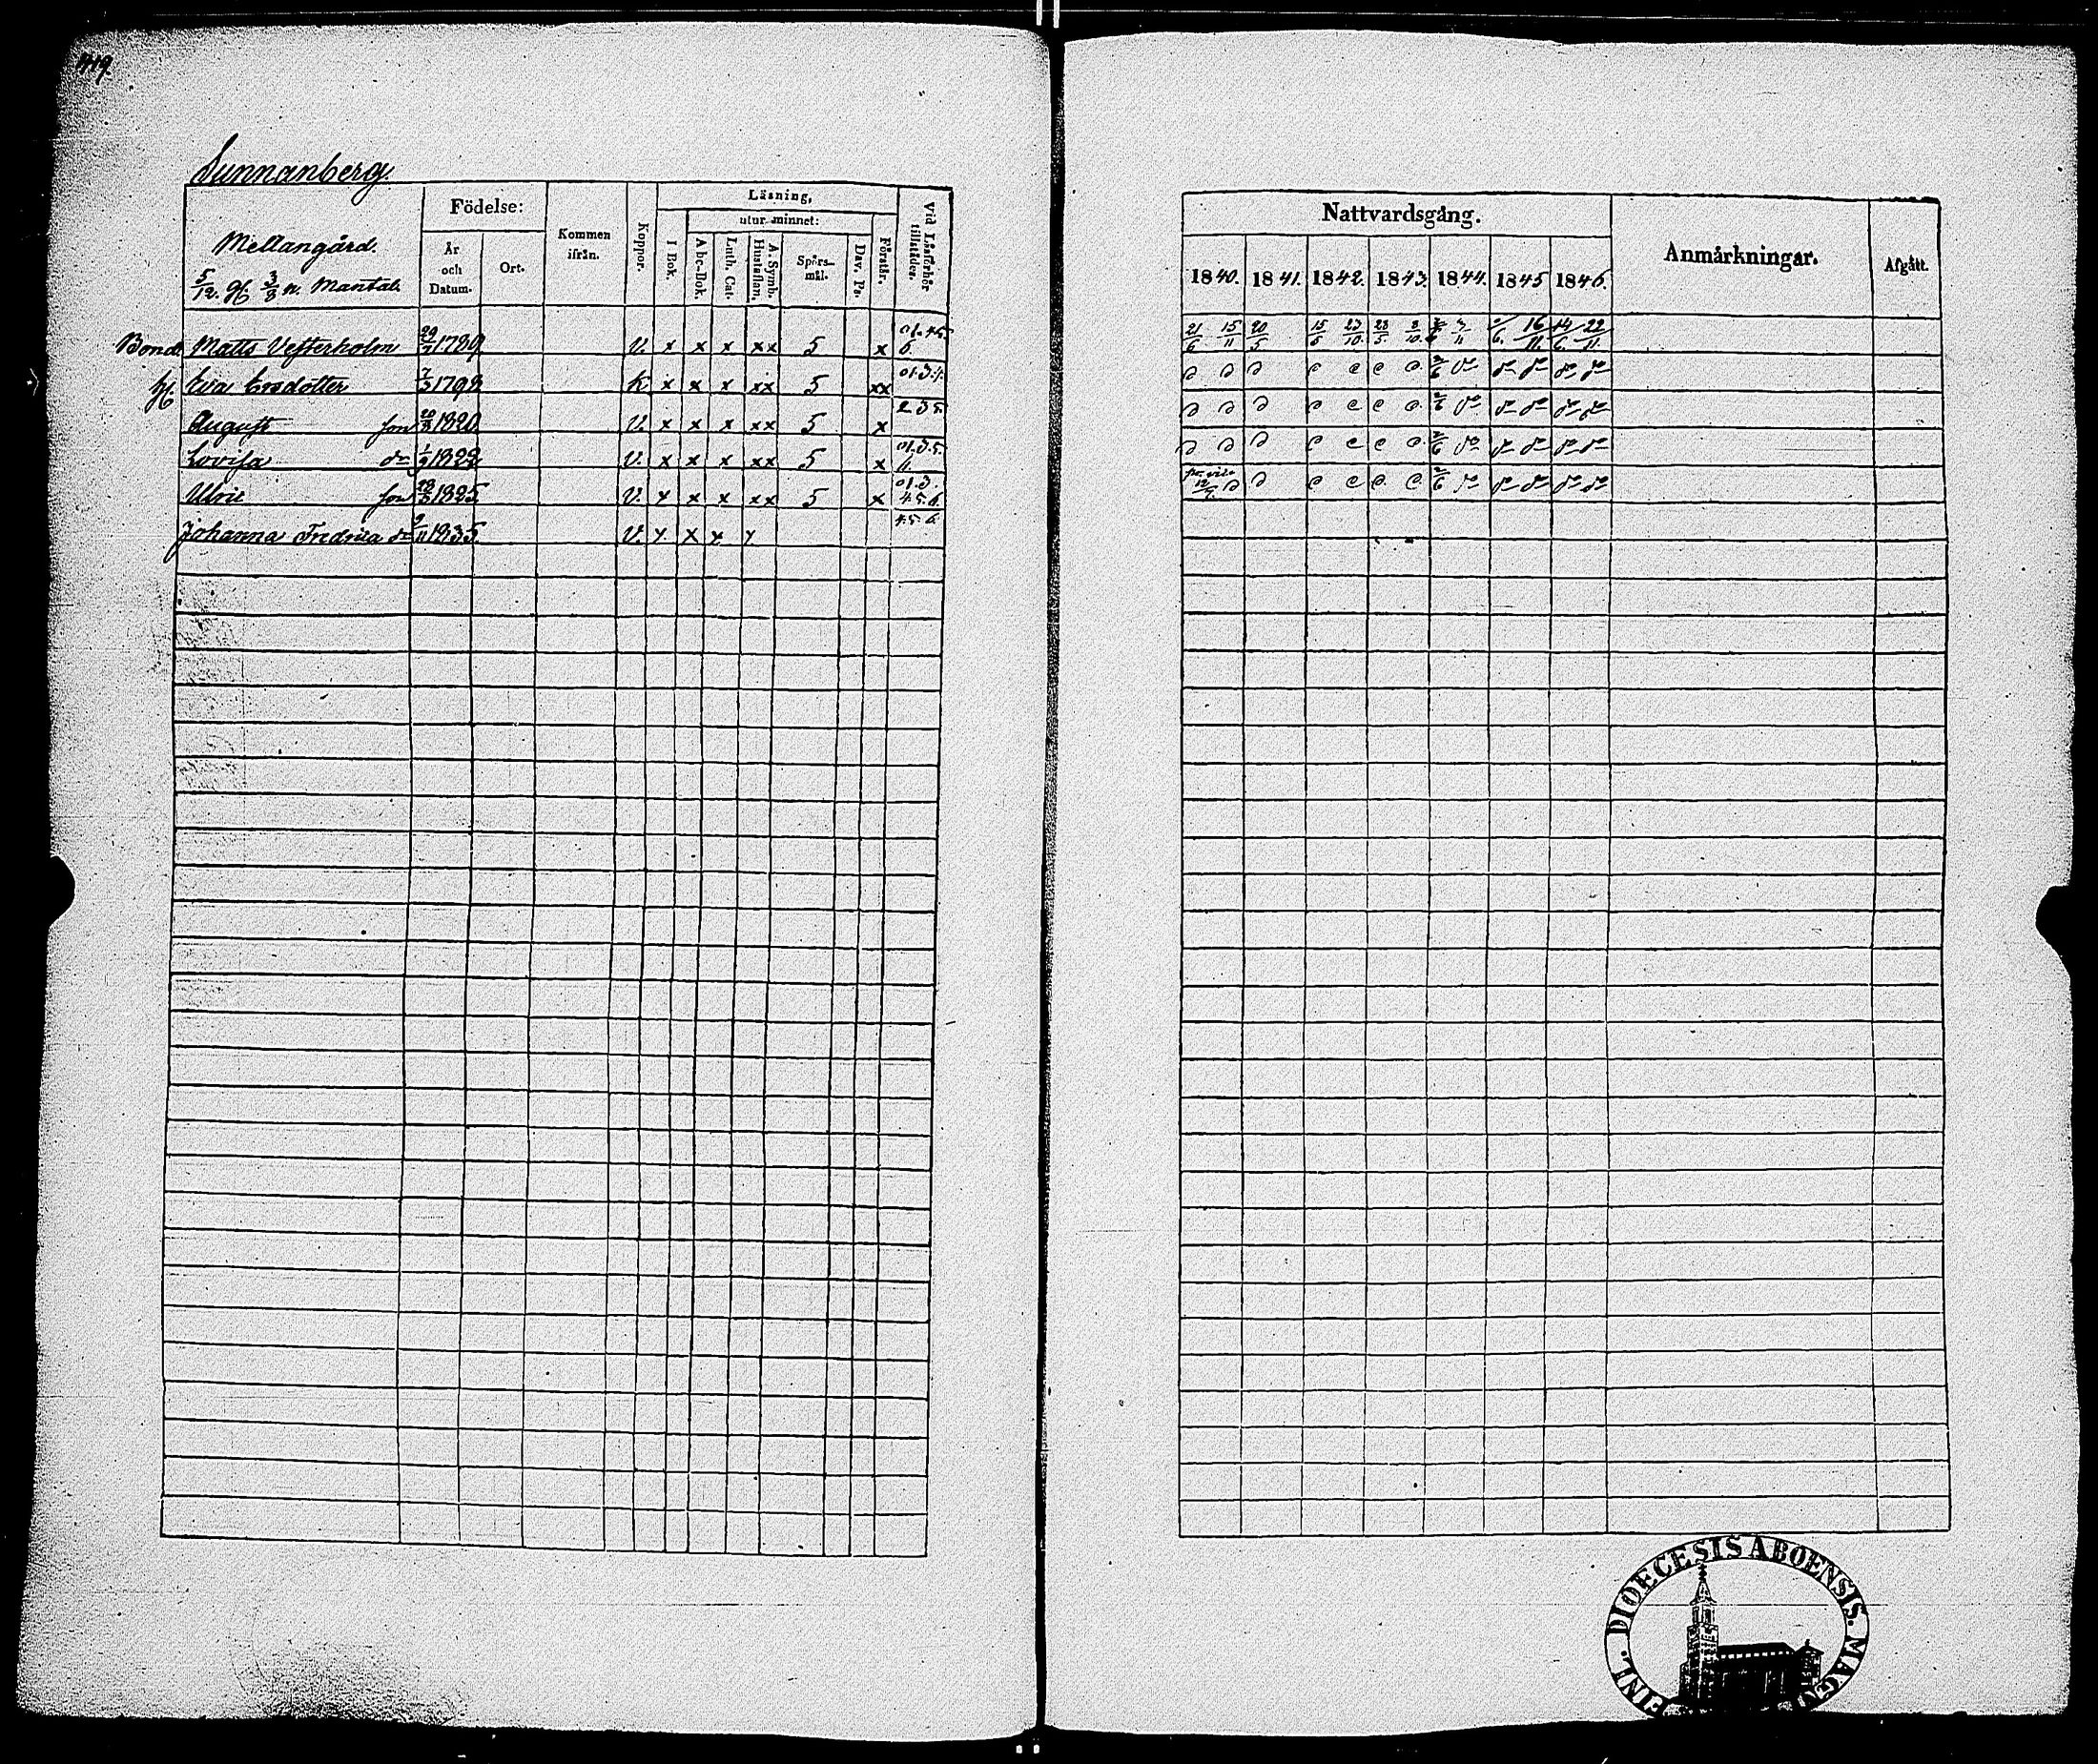 419.
Sunnanberg.
Mellangård.
5/12. gl. 3/8 n. Mantal.
Födelse:
År och Datum.
Ort.
Kommen ifrån.
Koppor.
Läsning,
I Bok.
utur minnet:
Abc-Bok.
Luth. Cat.
A. Symb. Hustaflan.
Spörs-mål.
Dav. Ps.
Förstår.
Vid Läsförhör tillstädes.
Bond. Matts Vesterholm 1789 V. x x x xx 5 x
H. Eva Ersdotter 1798 K x x x xx 5 xx 01.3.4.
August son 20/8 1820 V. x x x xx 5 x 2 3 5.
Lovisa dr 1822 V. x x x xx 5 x 01.3.5.
Ulric son 1825 V. x x x xx 5 x 01.3. 4.5.6.
Johanna Fredrica dr 9/11 1835 V. x x x x 4.5.6.
Nattvardsgång.
1840. 1841. 1842. 1843. 1844. 1845 1846.
Anmärkningar.
Afgått.
21/6 15/11 20/5 15/5 23/10. 23/5. 8/10. 16/11. 14/6. 22/11.
2/6 do do do do do
2/6 do do do do do
2/6 do do do do do
12/9. 2/6 do do do do do
FINL. DIOECESIS ABOENSIS. MAGN